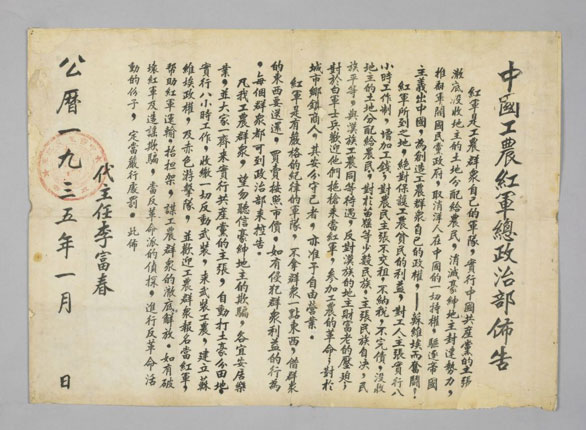 中國工農紅軍總政治部佈告
紅軍是工農群眾自己的軍隊，實行中國共產黨的主張
澈底没收地主的土地分配給農民，消滅豪紳地主封建勢力，
推翻軍閥國民黨政府，取消洋人在中國的一切特權，驅逐帝國
主義出中國，為創造工農群眾自己的政權——蘇維埃而奮鬪！
紅軍所到之地，絕對保護工農貧民的利益，對工人主張實行八
小時工作制，增加工錢，對農民主張不交租，不納稅，不完債，没收
地主的土地分配給農民，對於苗猺等少數民族，主張民族自决，民
族平等，與漢族工農同等待遇，反對漢族的地主財富老的壓迫，
對於白軍士兵歡迎他們拖槍來當紅軍，參加工農的革命，對於
城市鄉鎮商人，其安分守己者，亦准予自由營業。
紅軍是有嚴格的紀律的軍隊，不拿群眾一點東西，借群眾
的東西要送還，買賣按照市價，如有侵犯群眾利益的行為
，每個群眾都可到政治部來控告。
凡我工農群眾，望勿聽信豪紳地主的欺騙，各宜安居樂
業，並大家一齊來實行共產黨的主張，自動打土豪分田地，
實行八小時工作，收繳一切反動武裝，來武裝工農，建立蘇
維埃政權，及赤色游擊隊，並歡迎工農群眾報名當紅軍，
幫助紅軍運輸，抬担架，謀工農群眾的澈底解放。如有破
壞紅軍及造謠欺騙，當反革命派的偵探，進行反革命活
動的份子，定當嚴行處罰。此佈
代主任李富春
公曆一九三五年一月　日